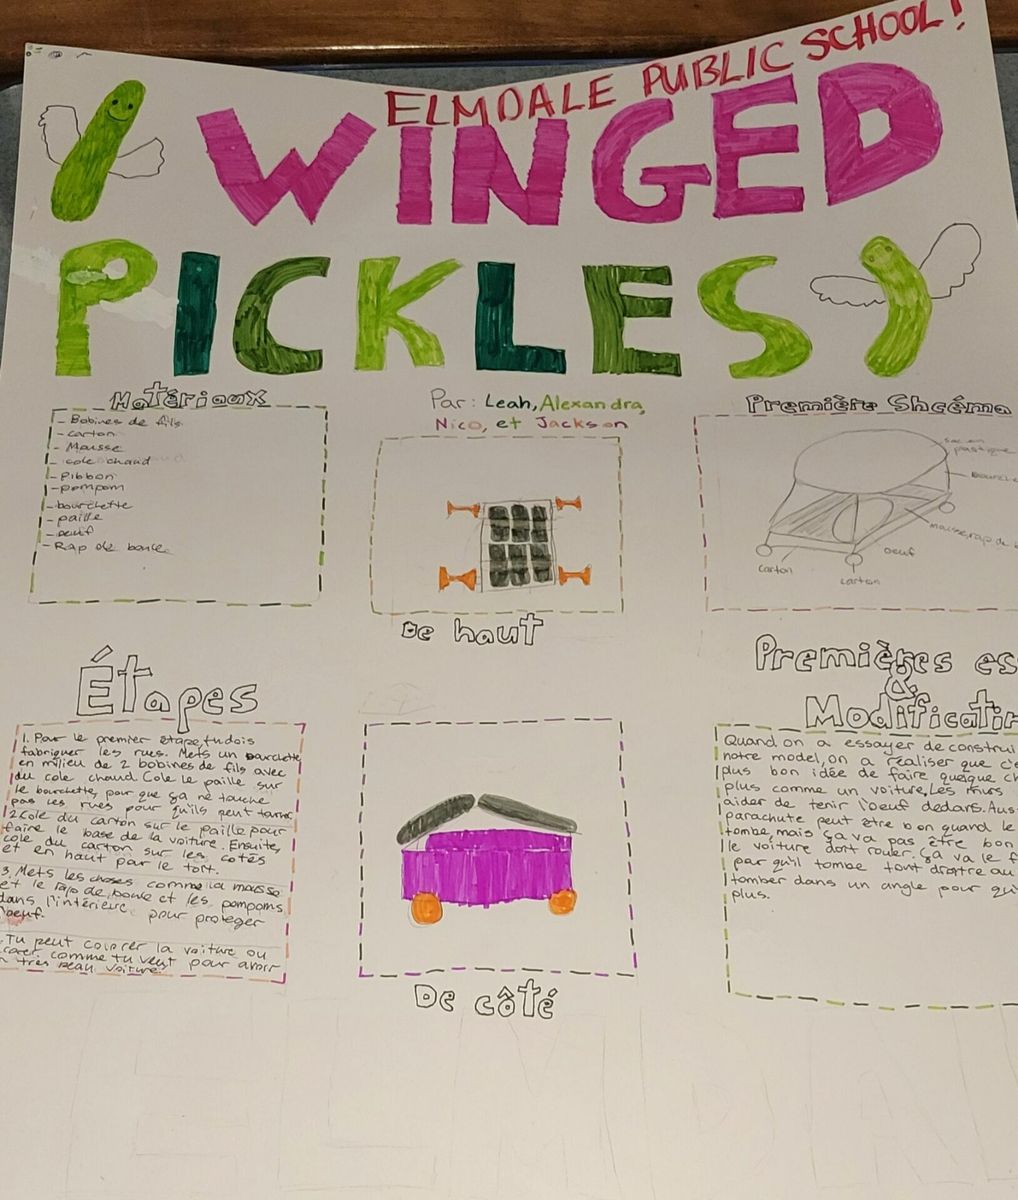 ELMDALE PUBLIC SCHOOL!
WINGED
PICKLES
Matériaux
- Bobines de fils
- carton
- Mousse
- cole chaud
- Ribbon
- pompom
- bourchette
- paille
- oeuf
- Rap de boule
Par: Leah, Alexandra,
Nico, et Jackson
De haut
Première Shcéma
sac en
plastique
oeuf
carton
carton
Étapes
1. Pour le premier étape, tu dois
fabriquer les rues. Mets un bourchette
en milieu de 2 bobines de fils avec
du cole chaud. Cole le paille sur
le bourchette, pour que ça ne touche
pas les rues pour qu'ils peut tourner.
2. Cole du carton sur le paille pour
faire le base de la voiture. Ensuite,
cole du carton sur les cotés
et en haut par le toit.
3. Mets les choses comme la mousse
et le rap de boule et les pompoms
dans l'intérieure pour proteger
l'oeuf.
Tu peut colorer la voiture ou
comme tu veut pour avoir
très beau voiture
De côté
Premières
&
Quand on a essayer de
notre model, on a réaliser que
plus bon idée de faire quelque
plus comme un voiture, Les murs
aider de tenir l'oeuf dedans.
parachute peut être bon quand le
tombe, mais ça va pas être bon
le voiture doit rouler. ça va le
par qu'il tombe tout droitre au
tomber dans un angle pour
plus.